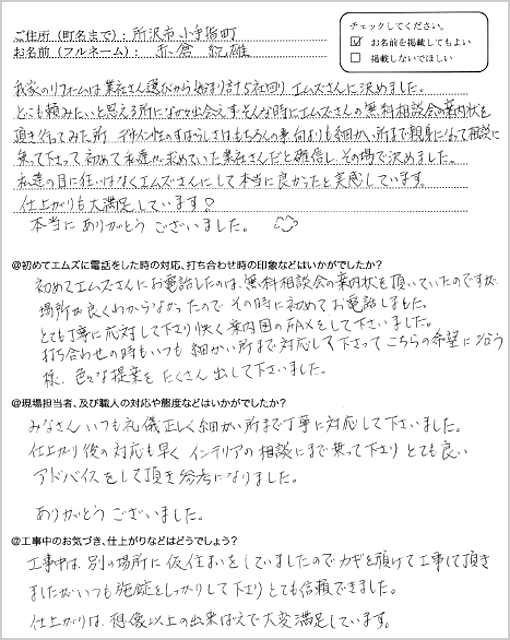 ご住所(町名まで):所沢市小手指町
お名前(フルネーム):赤倉紀雄
チェックしてください。
☑ お名前を掲載してもよい
□ 掲載しないでほしい
我家のリフォームは業社さん選びから始まり計5社回りエムズさんに決めました。
どこも頼みたいと思える所になかなか出会えずそんな時にエムズさんの無料相談会の案内状を
頂き行ってみた所 デザイン性のすばらしさはもちろんの事何よりも細かい所まで親身になって相談に
乗って下さって初めて私達が求めていた業社さんだと確信し、その場で決めました。
私達の目に狂いはなくエムズさんにして本当に良かったと実感しています。
仕上がりも大満足しています♡
本当にありがとうございました。
@初めてエムズに電話をした時の対応、打ち合わせ時の印象などはいかがでしたか?
初めてエムズさんにお電話したのは、無料相談会の案内状を頂いていたのですが
場所が良くわからなかったのでその時に初めてお電話しました。
とても丁寧に応対して下さり快く案内図のFAXをして下さいました。
打ち合わせの時もいつも細かい所まで対応して下さってこちらの希望に沿う
様、色々な提案をたくさん出して下さいました。
@現場担当者、及び職人の対応や態度などはいかがでしたか?
みなさんいつも礼儀正しく細かい所まで丁寧に対応して下さいました。
仕上がり後の対応も早くインテリアの相談にまで乗って下さりとても良い
アドバイスをして頂き参考になりました。
ありがとうございました。
@工事中のお気づき、仕上がりなどはどうでしょう?
工事中は、別の場所に仮住まいをしていましたのでカギを預けて工事して頂き
ましたがいつも施錠をしっかりして下さりとても信頼できました。
仕上がりは、想像以上の出来ばえで大変満足しています。